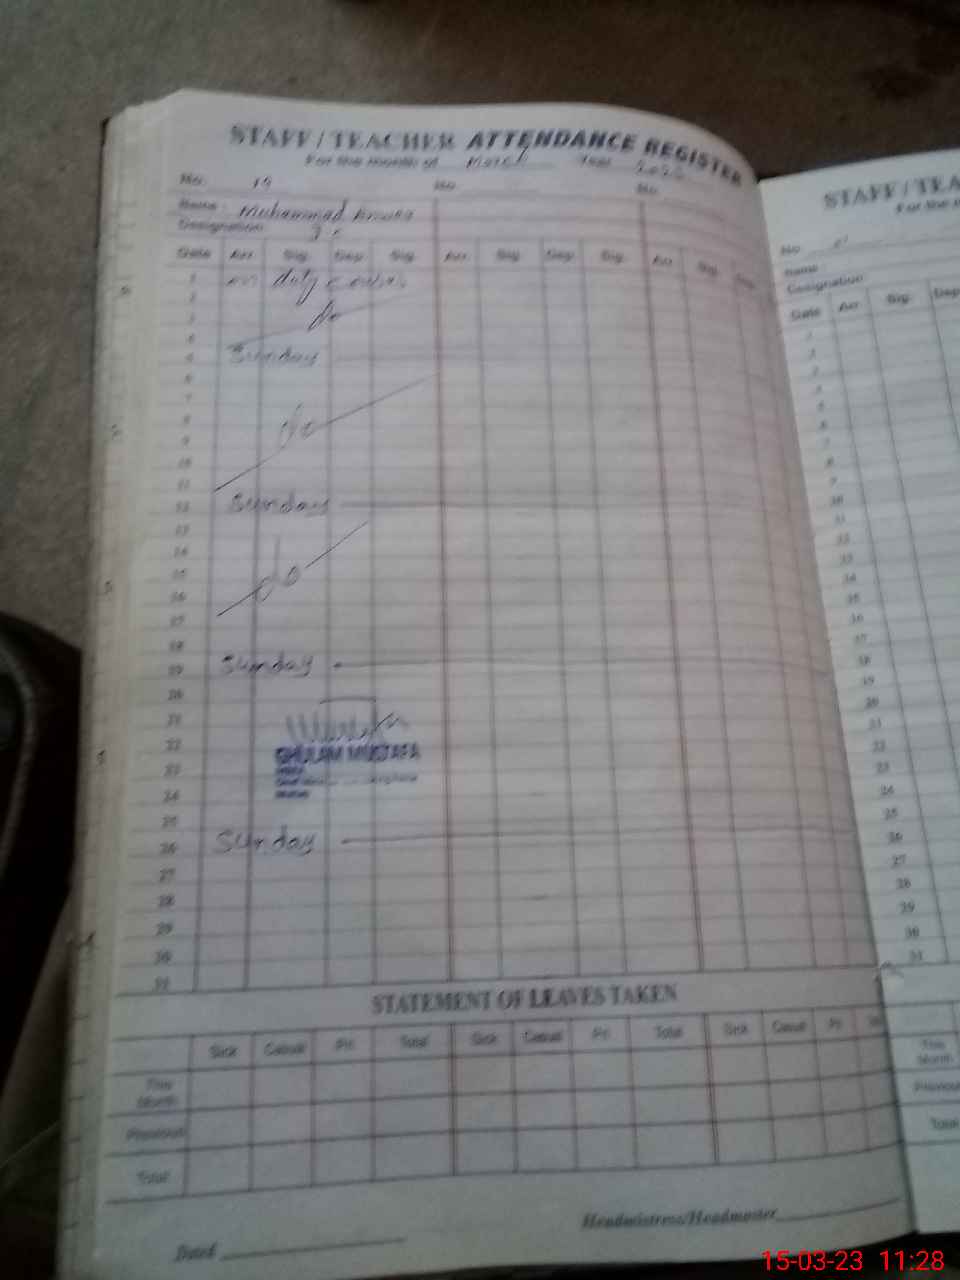 STAFF / TEACHER ATTENDANCE REGISTER
For the month of March Year
No. No. No.
Name: Muhammad
Designation
Date Arr. Sig. Dep. Sig. Arr. Sig. Dep. Sig. Arr. Sig.
1 on duty
2
3 do
4
5 Sunday
6
7
8 do
9
10
11
12 Sunday
13
14
15 do
16
17
18
19 Sunday
20
21
22 GHULAM MUSTAFA
23
24
25
26 Sunday
27
28
29
30
31
STATEMENT OF LEAVES TAKEN
Sick Casual Pri. Total Sick Casual Pri. Total Sick Casual Pri.
This Month
Previous
Total
Headmistress/Headmaster
Dated
STAFF / TEA
For the
No.
Name
Designation
Date Arr. Sig. Dep.
1
2
3
4
5
6
7
8
9
10
11
12
13
14
15
16
17
18
19
20
21
22
23
24
25
26
27
28
29
30
31
This Month
Previous
Total
15-03-23 11:28